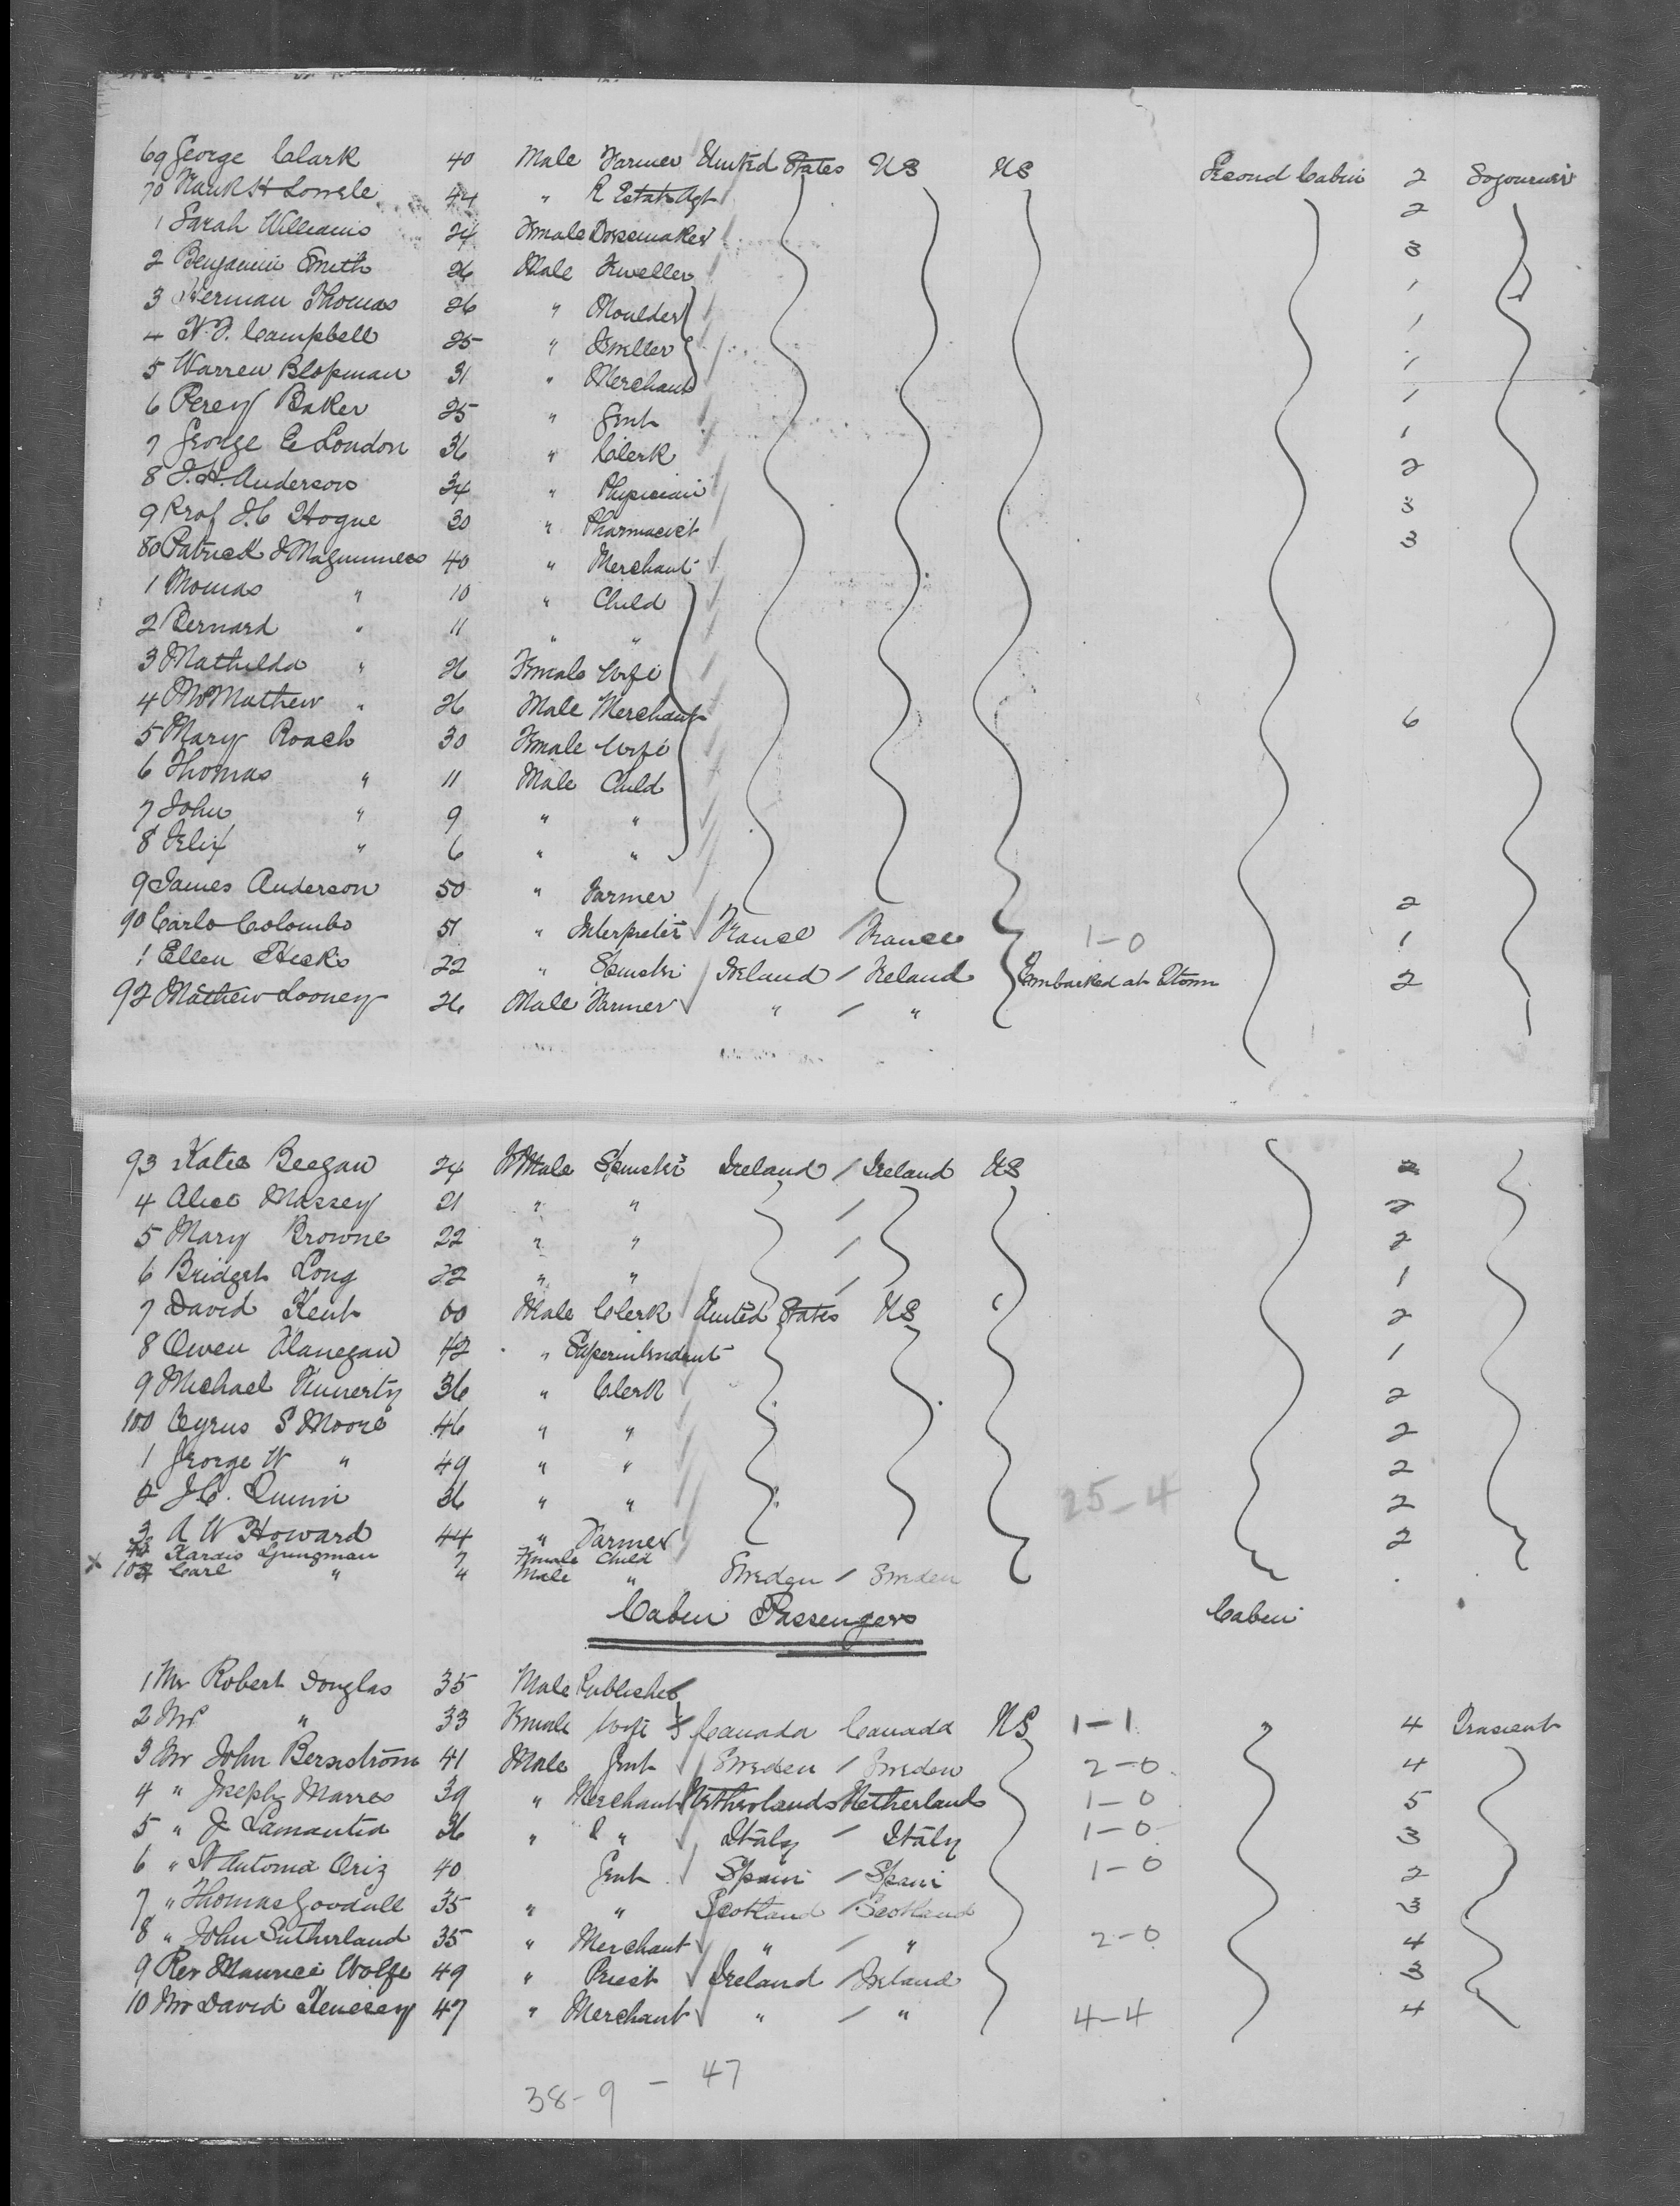 69 George Clark 40 Male Farmer United States US US Second Cabin 2 Sojourner
70 44 " R Estate Agt 2
1 Sarah Williams 24 Female Dressmaker 3
2 Benjamin Smith 26 Male Jweller 1
3 Herman Thomas 26 " Moulder 1
4 Campbell 25 " Jweller 1
5 Warren 31 " Merchant 1
6 Percy Baker 25 " Gent 1
7 George E London 36 " Clerk 2
8 J. H. Anderson 34 " Physician 3
9 Prof J. C Hogue 30 " Pharmacist 3
80 Patrick 40 " Merchant
1 Thomas " 10 " Child
2 Bernard " 11 " "
3 Mathilda " 26 Female Wife
4 Mathew " 26 Male Merchant 6
5 Mary Roach 30 Female Wife
6 Thomas " 11 Male Child
7 John " 9 " "
8 Felix " 6 " "
9 James Anderson 50 " Farmer 2
90 Carlo Colombo 51 " Interpreter France / France 1-0 1
1 Ellen Hicks 22 " Spinster Ireland / Ireland Embarked at 2
92 Mathew Looney 26 Male Farmer " / "
93 Katie Beegan 24 Female Spinster Ireland / Ireland US 2
4 Alice Massey 21 " " / 2
5 Mary Browne 22 " " / 2
6 Bridget Long 22 " " / 1
7 David Kent 60 Male Clerk United States US 2
8 Owen Flanegan 42 " Superintendant 1
9 Michael Finnerty 36 " Clerk 2
100 Cyrus S Moore 46 " " 2
1 George W " 49 " " 2
2 J C. Quinn 36 " " 25-4 2
3 A W Howard 44 " Farmer 2
Ljungman 7 Female Child
x Carl " 4 Male " Sweden / Sweden
Cabin Passengers Cabin
1 Mr Robert Douglas 35 Male Publisher
2 Mrs " 33 Female Wife Canada Canada US 1-1 4 Trasient
3 Mr John 41 Male Gent Sweden / Sweden 2-0 4
4 " Joseph Marres 39 " Merchant Netherlands Netherlands 1-0 5
5 " J Lamantia 36 " " Italy / Italy 1-0 3
6 " Oriz 40 Gent Spain / Spain 1-0 2
7 " Thomas Goodall 35 " " Scotland / Scotland 3
8 " John Sutherland 35 " Merchant " / " 2-0 4
9 Rev Maurice Wolfe 49 " Priest Ireland / Ireland 3
10 Mr David 47 " Merchant " / " 4-4 4
38-9 - 47